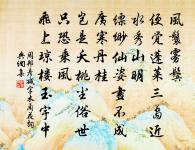 風鬟霧鬢
便覺蓬萊三島近
水秀山明
縹緲仙姿畫不成
廣寒丹桂
豈是夭桃塵俗世
只恐乘風
飛上瓊樓玉宇中
周邦彥減字木蘭花詞